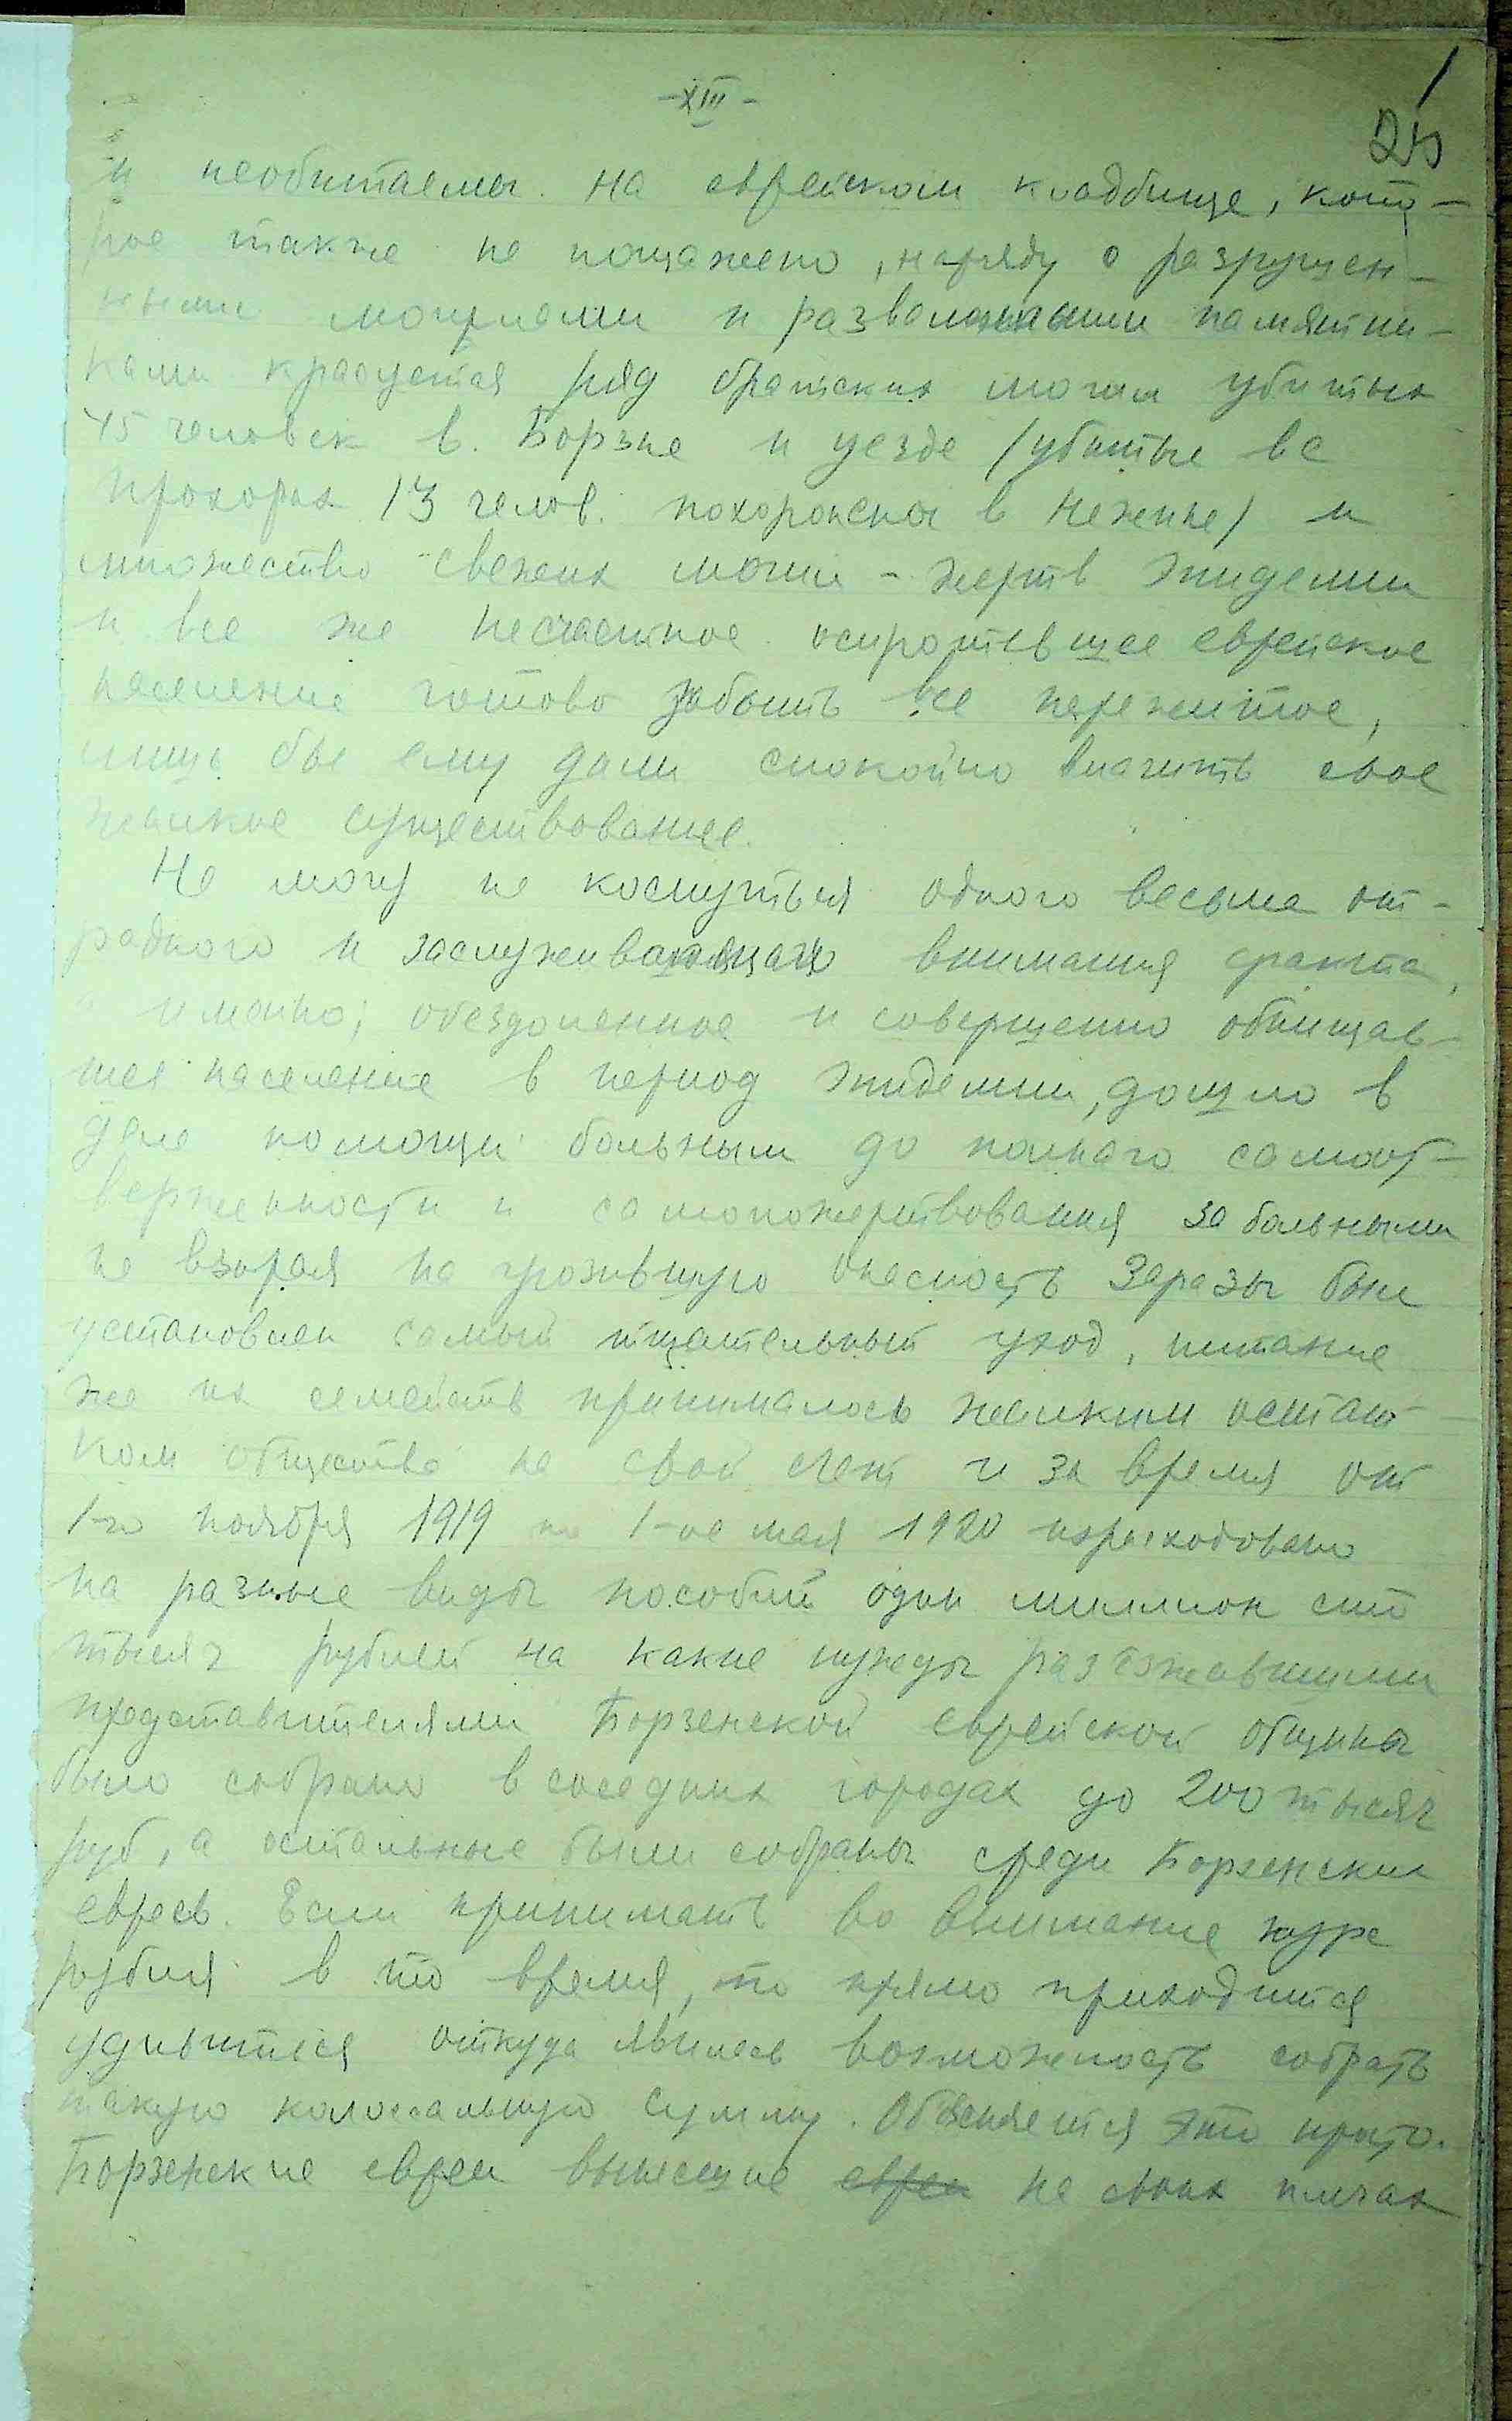 -XIII-
25
и необитаемы. На еврейском кладбище, кото-
рое также не пощажено, наряду с разрушен-
ными могилами и разваленными памятни-
ками красуется ряд братских могил убитых
45 человек в. Борзне и уезде (убитые в с
Прохорах 13 челов. похоронены в Нежине) и
множество свежих могил - жертв эпидемии
и все же несчастное осиротевшее еврейское
население готово забыть все пережитое,
лишь бы ему дали спокойно влачить свое
жалкое существование.
Не могу не коснуться одного весьма от-
радного и заслуживающаго внимания факта,
а именно; обездоленное и совершенно обнищав-
шее население в период эпидемии, дошло в
деле помощи больным до полнаго самоот-
верженности и самопожертвования за больными
не взирая на грозившую опасность заразы был
установлен самый тщательный уход, питание
же их семейств принималось жалким остат-
ком общества на свой счет и за время от
1-го ноября 1919 по 1-ое мая 1920 израсходовано
на разные виды пособий один миллион сто
тысяч рублей на какие нужды раз'езжавшими
представителями Борзенской еврейской общины
было собрано в соседних городах до 200 тысяч
руб, а остальные были собраны среди Борзенских
евреев. Если принимать во внимание курс
рубля в то время, то прямо приходится
удивиться откуда явилась возможность собрать
такую колоссальную сумму. Об'ясняется это просто.
Борзенские евреи вынесшие евреи на своих плечах